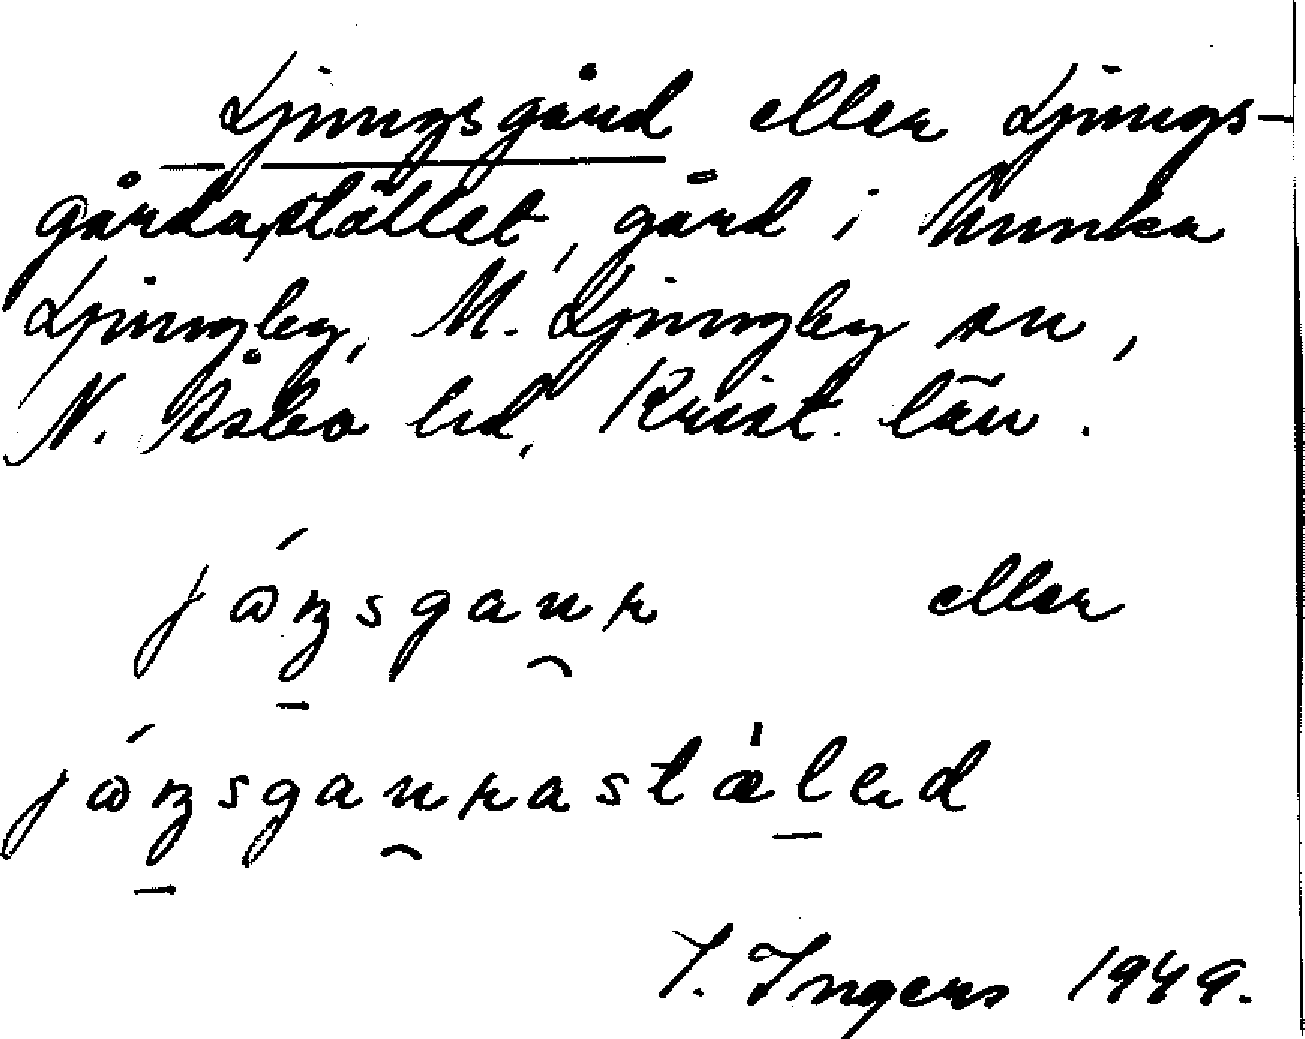 Ljungsgård eller Ljungs-
gårdastället, gård i Munka
Ljungby, M. Ljungby sn,
N. Åsbo hd, Krist. län.
jåŋsgaur eller
jåŋsgaurastæled
I. Ingers 1949.